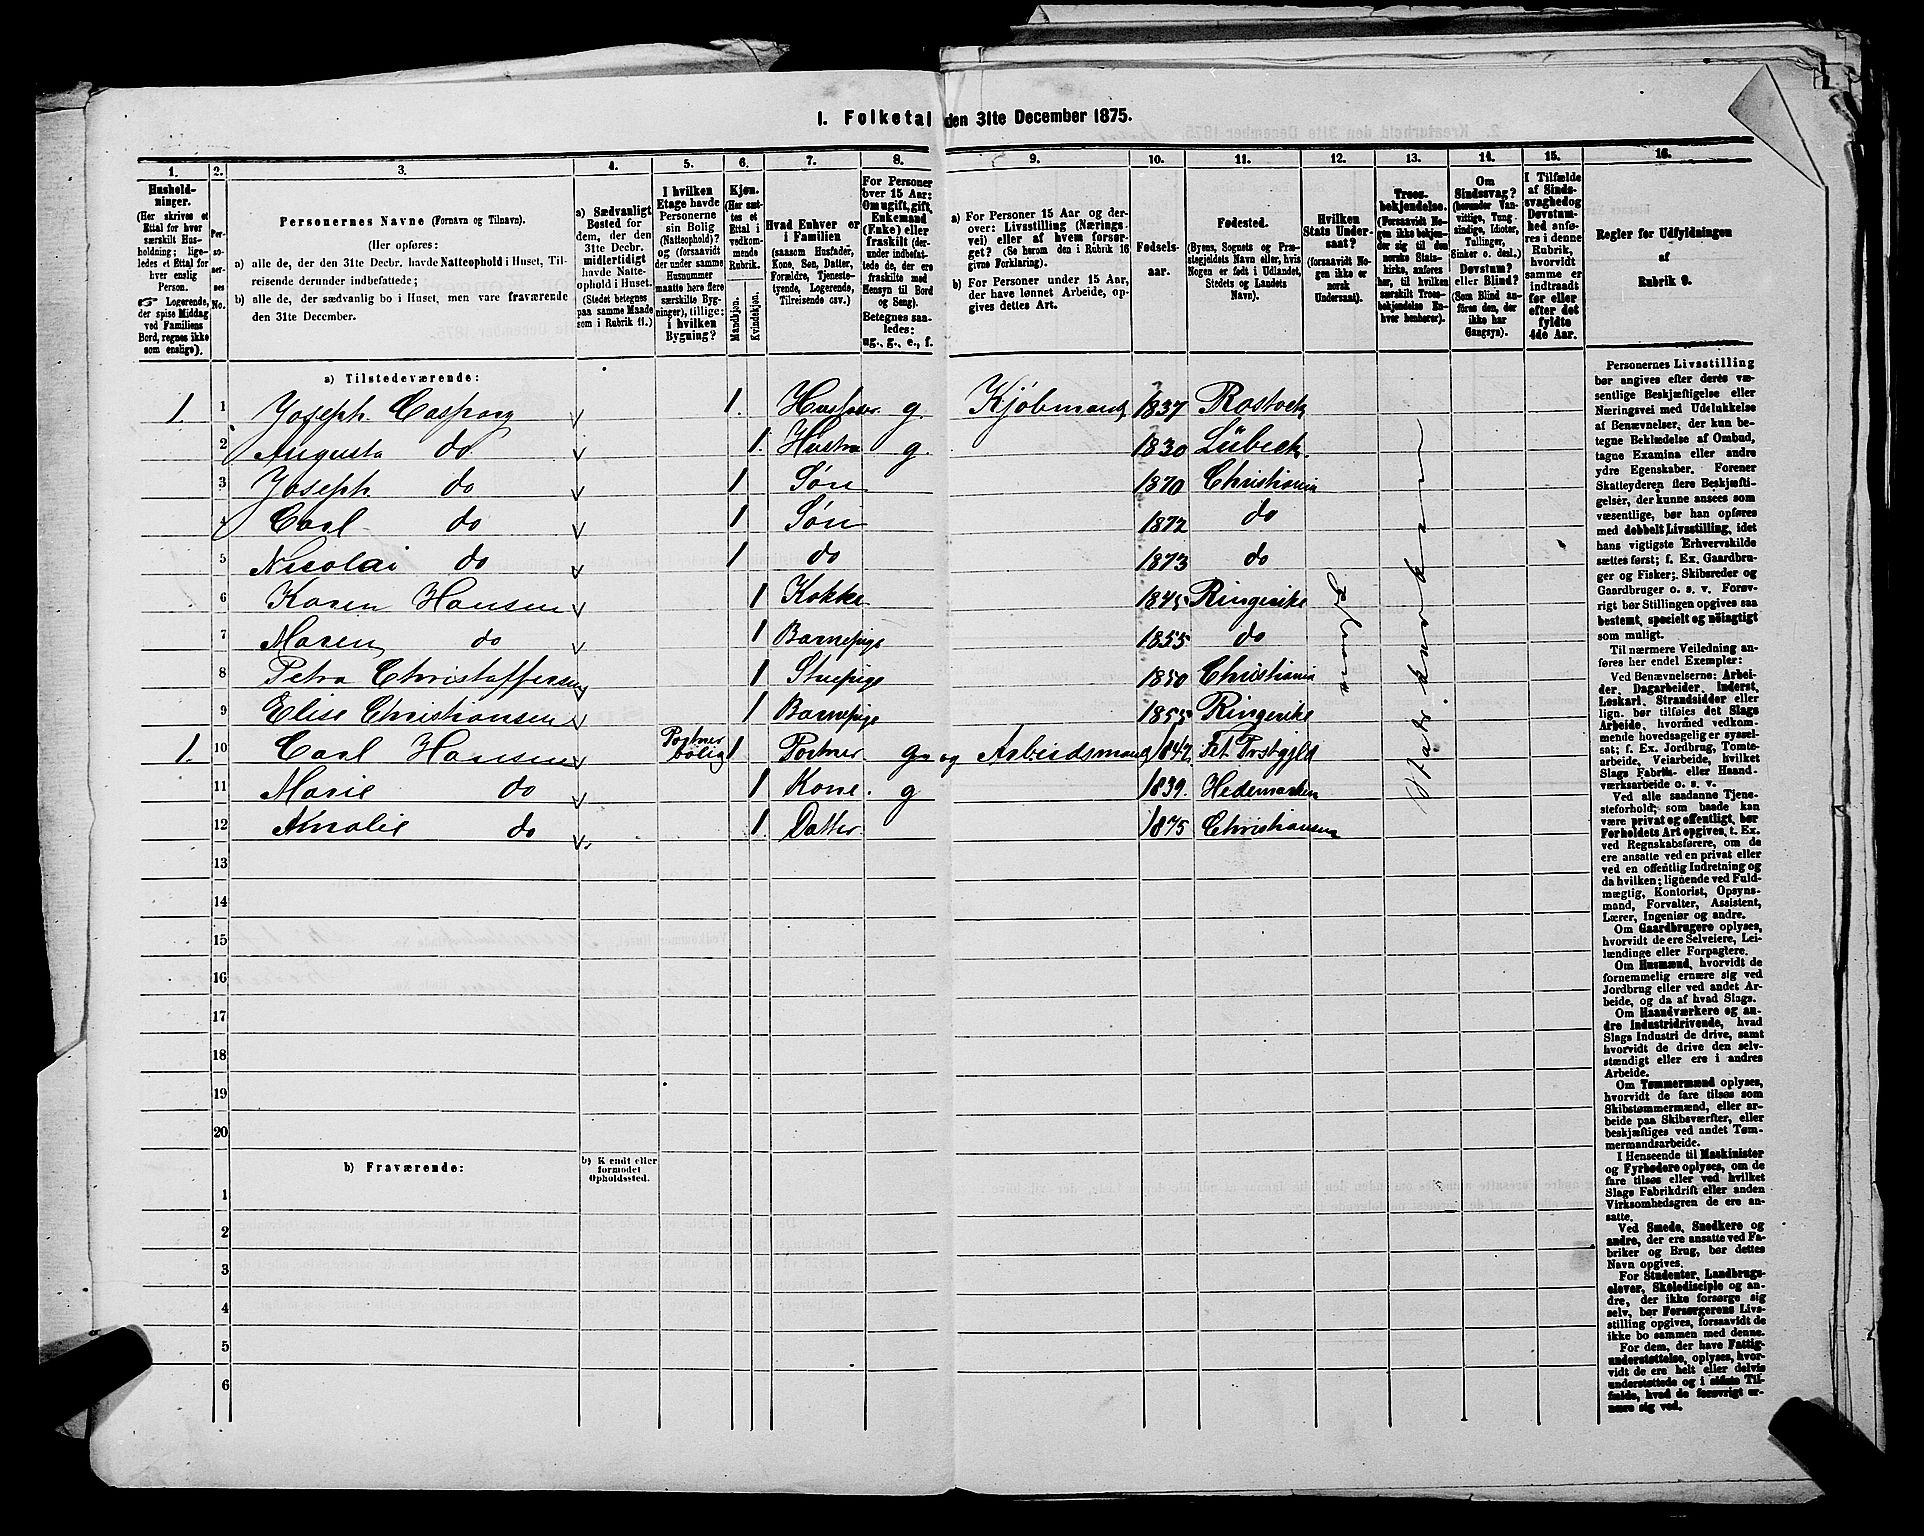 1. Folketal den 31te December 1875.
1. 2. 3. 4. 5. 6. 7. 8. 9. 10. 11. 12. 13. 14. 15. 16.
Husholdninger. (Her skrives et Ettal for hver særskilt Husholdning; ligeledes et Ettal for hver enslig Person. ☞ Logerende, der spise Middag ved Familiens Bord, regnes ikke som enslige).
Personernes No.
Personernes Navne (Fornavn og Tilnavn).
(Her opføres:
a) alle de, der den 31te Decbr. havde Natteophold i Huset, Tilreisende derunder indbefattede;
b) alle de, der sædvanlig bo i Huset, men vare fraværende den 31te December.
a) Sædvanligt Bosted for dem, der den 31te Decbr. midlertidigt havde Natteophold i Huset. (Stedet betegnes paa samme Maade som i Rubrik 11.)
I hvilken Etage havde Personerne sin Bolig (Natteophold)? (forsaavidt der under samme Husnummer maatte høre flere særskilte Bygninger), tillige: i hvilken Bygning?
Kjøn. (Her sættes et Ettal i vedkommende Rubrik.
Mandkjøn. Kvindekjøn.
Hvad Enhver er i Familien (saasom Husfader, Kone, Søn, Datter, Forældre, Tjenestetyende, Logerende, Tilreisende osv.)
For Personer over 15 Aar: Om ugift, gift, Enkemand (Enke) eller fraskilt (derindbefattede de, der ere fraskilte med Hensyn til Bord og Seng). Betegnes saaledes: ug., g., e., f.
a) For Personer 15 Aar og derover: Livsstilling (Næringsvei) eller af hvem forsørget? (Se herom den i Rubrik 16 givne Forklaring).
b) For Personer under 15 Aar, der have lønnet Arbeide, opgives dettes Art.
Fødselsaar.
Fødested. (Byens, Sognets og Præstegjeldets Navn eller, hvis Nogen er født i Udlandet, Stedets og Landets Navn).
Hvilken Stats Undersaat? (forsaavidt Nogen ikke er norsk Undersaat).
Troesbekjendelse. (Forsaavidt Nogen ikke bekjender sig til den norske Statskirke, anføres her, til hvilken særskilt Troesbekjendelse Enhver henhører).
Om Sindssvag? (herunder Vanvittige, Tungsindige, Idioter, Tullinger, Sinker o. desl.) Døvstum? eller Blind? (Som Blind anføres den, der ikke har Gangsyn).
I Tilfælde af Sindssvaghed og Døvstumhed anføres i denne Rubrik, hvorvidt samme er indtraadt før eller efter det fyldte 4de Aar.
Regler for Udfyldningen af Rubrik 9.
a) Tilstedeværende:
1. 1 Joseph Caspary 1. Husfader g Kjøbmand 1837 Rostock
2 Augusta do 1. Hustru g. 1830 Lübeck.
3 Joseph do 1 Søn 1870 Christiania
4 Carl do 1 Søn 1872 do
5 Nicolai do 1 do 1873 do
6 Karen Hansen 1 Kokke 1845 Ringerike
7 Maren do 1 Barnepige 1855 do
8 Petra Christoffersen 1 Stuepige 1850 Christiania
9 Elise Christiansen 1 Barnepige 1855 Ringerike
1. 10 Carl Hansen Portner bolig 1 Portner g. og Arbeidsmand 1847 Fet Prstgjld
11 Marie do 1 Kone. g 1839. Hedemarken
12 Amalie do 1 Datter 1875 Christiania
13
14
15
16
17
18
19
20
b) Fraværende: b) Kendt eller formodet Opholdssted.
1
2
3
4
5
6
Personernes Livsstilling
bør angives efter deres væsentlige
Beskjæftigelse eller
Næringsvei med Udelukkelse
af Benævnelser, der kun betegne
Beklædelse af Ombud,
tagne Examina eller andre
ydre Egenskaber. Forener
Skatteyderen flere Beskjæftigelser,
der kunne ansees som
væsentlige, bør han opføres
med dobbelt Livsstilling, idet
hans vigtigste Erhvervskilde
sættes først; f. Ex. Gaardbruger
og Fisker; Skibsreder og
Gaardbruger o. s. v. Forøvrigt
bør Stillingen opgives saa
bestemt, specielt og nöiagtigt
som muligt.
Til nærmere Veiledning anføres
her endel Exempler:
Ved Benævnelserne: Arbeider,
Dagarbeider, Inderst,
Løskarl, Strandsidder eller
lign. bør tilføies det Slags
Arbeide, hvormed vedkommende
hovedsagelig er sysselsat;
f. Ex. Jordbrug, Tomtearbeide,
Veiarbeide, hvilket
Slags Fabrik- eller Haandværksarbeide
o. s. v.
Ved alle saadanne Tjenesteforhold,
som baade kan
være privat og offentligt, bør
Forholdets Art opgives, t. Ex.
ved Regnskabsførere, om de
ere ansatte ved en privat eller
ved en offentlig Indretning og
da hvilken; lignende ved Fuldmægtig,
Kontorist, Opsynsmand,
Forvalter, Assistent,
Lærer, Ingeniør og andre.
Om Gaardbrugere oplyses,
hvorvidt de ere Selveiere, Leilændinge
eller Forpagtere.
Om Husmænd, hvorvidt de
fornemmelig ernære sig ved
Jordbrug eller ved andet Arbeide,
og da af hvad Slags.
Om Haandværkere og andre
Industridrivende, hvad
Slags Industri de drive, samt
hvorvidt de drive den selvstændigt
eller ere i andres
Arbeide.
Om Tømmermænd oplyses,
hvorvidt de fare tilsøs som
Skibstømmermænd, eller arbeide
paa Skibsværfter, eller
beskjæftiges ved andet Tømmermandsarbeide.
I Henseende til Maskinister
og Fyrbødere oplyses, om de
fare tilsøs eller ved hvilket
Slags Fabrikdrift eller anden
Virksomhedsgren de ere ansatte.
Ved Smede, Snedkere og
andre, der ere ansatte ved Fabriker
og Brug, bør dettes
Navn opgives.
For Studenter, Landbrugselever,
Skoledisciple og andre,
der ikke forsørge sig
selv, bør Forsørgerens Livsstilling
opgives, forsaavidt de
ikke bo sammen med denne.
For dem, der have Fattigunderstøttelse,
oplyses, hvorvidt
de ere helt eller delvis
understøttede og i sidste Tilfælde,
hvad de forøvrigt ernære
sig ved.